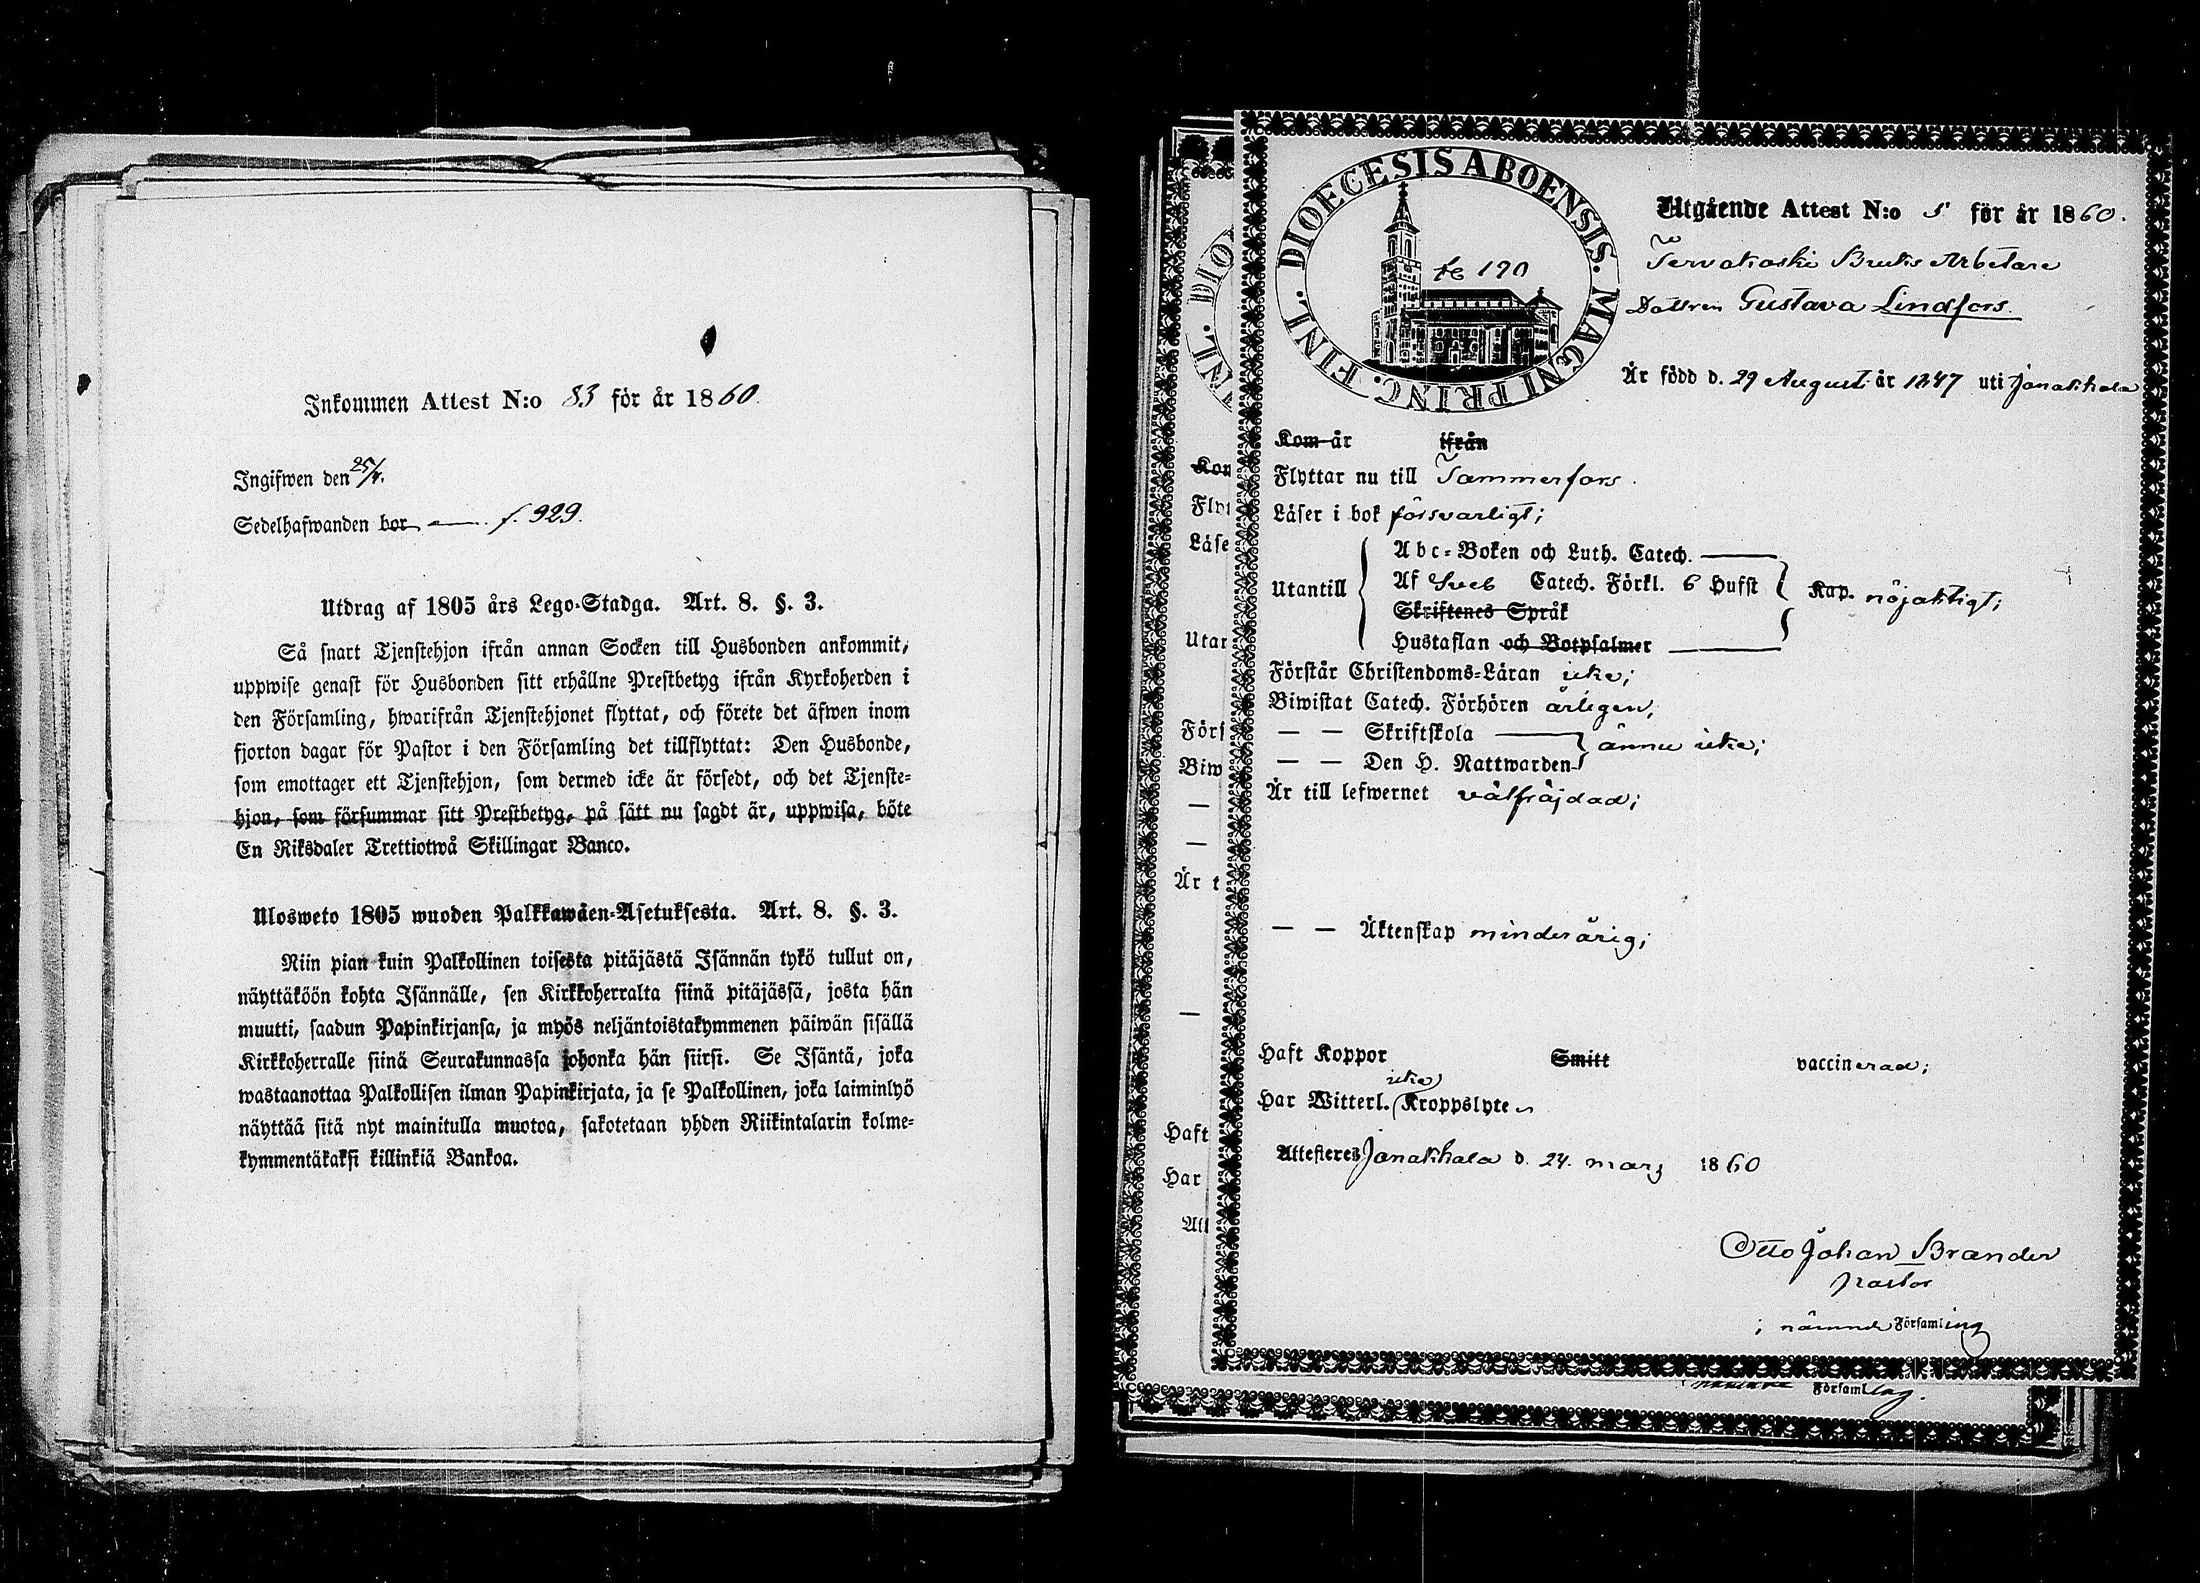 Inkommen Attest N:o 83 för år 1860.
Ingifwen den 25/4.
Sedelhafwanden bor f. 929.
Utdrag af 1805 års Lego-Stadga. Art. 8. §. 3.
Så snart Tjenstehjon ifrån annan Socken till Husbonden ankommit,
uppwise genast för Husbonden sitt erhållne Prestbetyg ifrån Kyrkoherden i
den Församling, hwarifrån Tjenstehjonet flyttat, och förete det äfwen inom
fjorton dagar för Pastor i den Församling det tillflyttat: Den Husbonde,
som emottager ett Tjenstehjon, som dermed icke är försedt, och det Tjenste-
hjon, som försummar sitt Prestbetyg, på sätt nu sagdt är, uppwisa, böte
En Riksdaler Trettiotwå Skillingar Banco.
Ulosweto 1805 wuoden Palkkawäen-Asetuksesta. Art. 8. §. 3.
Niin pian kuin Palkollinen toisesta pitäjästä Isännän tykö tullut on,
näyttäköön kohta Isännälle, sen Kirkkoherralta siinä pitäjässä, josta hän
muutti, saadun Papinkirjansa, ja myös neljäntoistakymmenen päiwän sisällä
Kirkkoherralle siinä Seurakunnassa johonka hän siirsi. Se Isäntä, joka
wastaanottaa Palkollisen ilman Papinkirjata, ja se Palkollinen, joka laiminlyö
näyttää sitä nyt mainitulla muotoa, sakotetaan yhden Riikintalarin kolme-
kymmentäkaksi killinkiä Bankoa.
FINL. DIOECESIS ABOENSIS. MAGNI PRINC.
190
Utgående Attest N:o 5 för år 1860.
Tervakoski Bruks Arbetare
Dottren Gustava Lindfors.
Är född d. 29 August. år 1847 uti Janakkala
Kom år ifrån
Flyttar nu till Tammerfors.
Läser i bok försvarligt;
Utantill
Abc-Boken och Luth. Catech.
Af Sveb Catech. Förkl. 6 Hufst
Skriftenes Språk
Hustaflan och Botpsalmer
Kap. nöjaktigt;
Förstår Christendoms-Läran icke;
Biwistat Catech. Förhören årligen;
— — Skriftskola
— — Den H. Nattwarden
ännu icke;
Är till lefwernet välfräjdad;
— — Äktenskap minderårig;
Haft Koppor Smitt vaccinerad;
icke
Har Witterl. Kroppslyte
Attesteres Janakkala d. 24. mars 1860
Otto Johan Brander
pastor
i nämnde Församling
Församling.